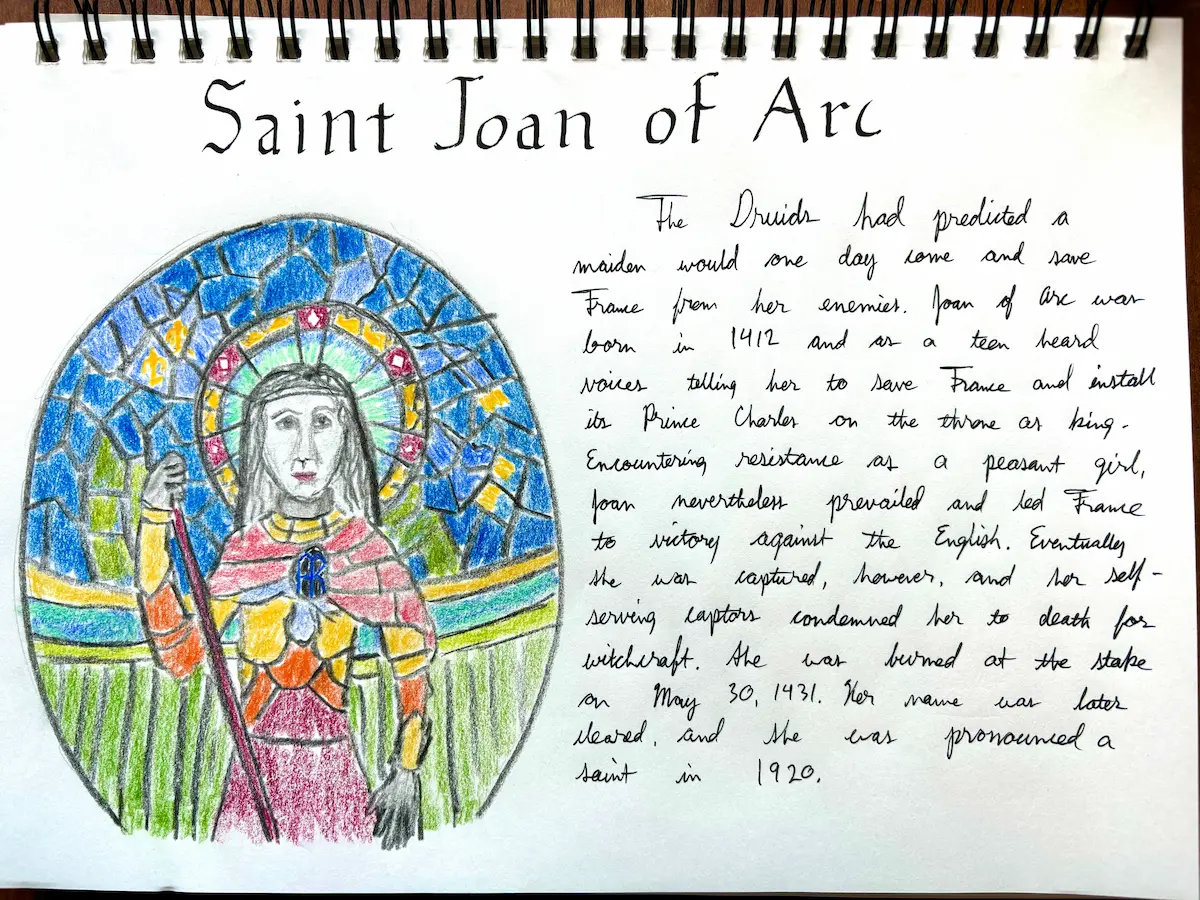 Saint Joan of Arc
The Druids had predicted a
maiden would one day come and save
France from her enemies. Joan of Arc was
born in 1412 and as a teen heard
voices telling her to save France and install
its Prince Charles on the throne as king.
Encountering resistance as a peasant girl,
Joan nevertheless prevailed and led France
to victory against the English. Eventually
she was captured, however, and her self-
serving captors condemned her to death for
witchcraft. She was burned at the stake
on May 30, 1431. Her name was later
cleared, and she was pronounced a
saint in 1920.